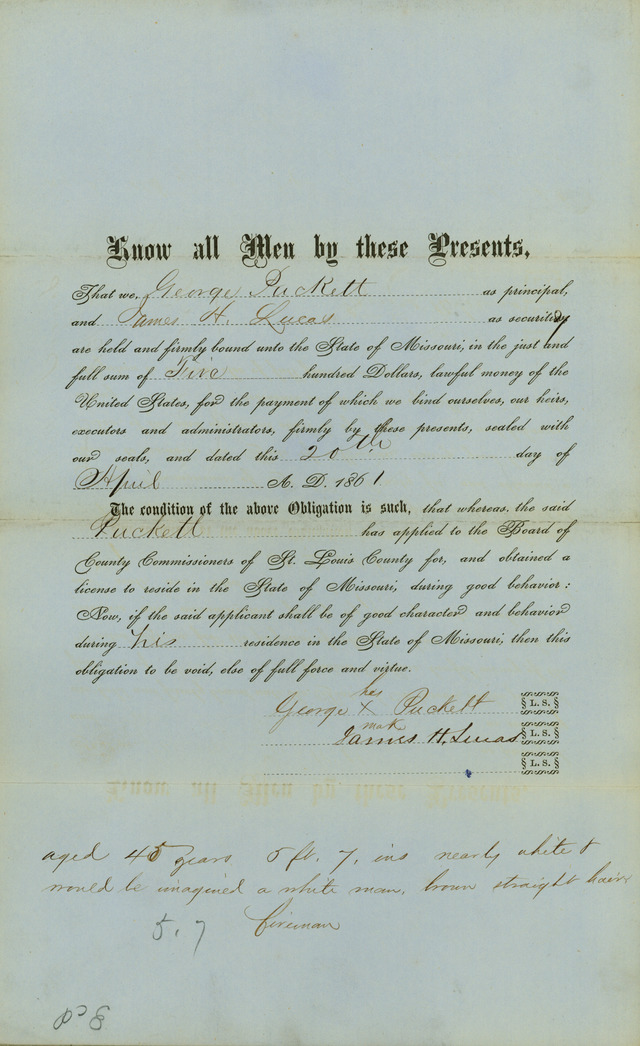 Know all Men by these Presents,
That we, George Puckett as principal,
and James H. Lucas as security
are held and firmly bound unto the State of Missouri, in the just and
full sum of Five hundred Dollars, lawful money of the
United States, for the payment of which we bind ourselves, our heirs,
executors and administrators, firmly by these presents, sealed with
our seals, and dated this 20th day of
April A. D. 1861
The condition of the above Obligation is such, that whereas, the said
Puckett has applied to the Board of
County Commissioners of St. Louis County for, and obtained a
license to reside in the State of Missouri, during good behavior:
Now, if the said applicant shall be of good character and behavior
during his residence in the State of Missouri, then this
obligation to be void, else of full force and virtue.
his
George X Puckett L. S.
mak
James H. Lucas L. S.
L. S.
aged 45 years 5 ft. 7, ins nearly white &
would be imagined a white man, brown straight hair
5.7 fireman